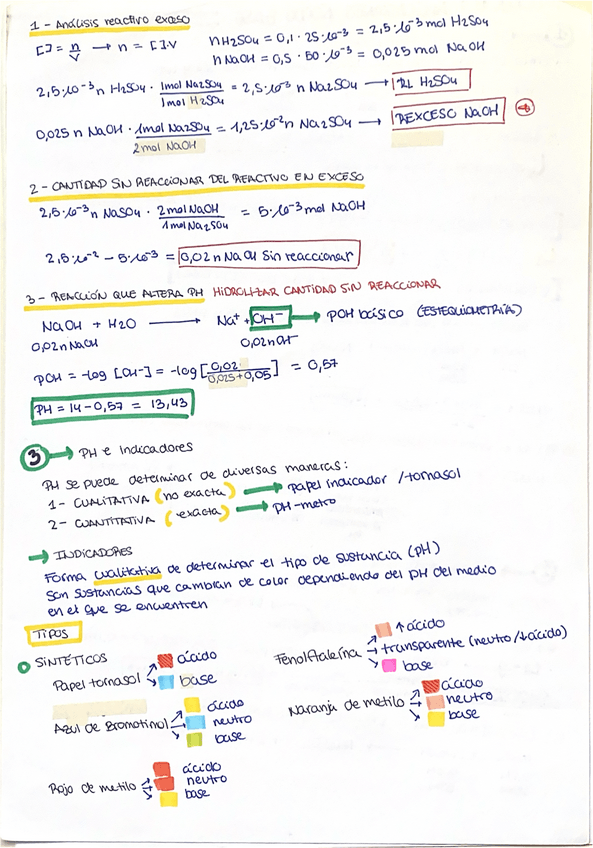 1 - Análisis reactivo exceso
[ ] = n/V → n = [ ]·V
nH2SO4 = 0,1 · 25·10⁻³ = 2,5·10⁻³ mol H2SO4
n NaOH = 0,5 · 50·10⁻³ = 0,025 mol NaOH
2,5·10⁻³ n H2SO4 · 1mol Na2SO4 / 1mol H2SO4 = 2,5·10⁻³ n Na2SO4 → RL H2SO4
0,025 n NaOH · 1mol Na2SO4 / 2mol NaOH = 1,25·10⁻² n Na2SO4 → REXCESO NaOH
2 - CANTIDAD SIN REACCIONAR DEL REACTIVO EN EXCESO
2,5·10⁻³ n NaSO4 · 2mol NaOH / 1mol Na2SO4 = 5·10⁻³ mol NaOH
2,5·10⁻² - 5·10⁻³ = 0,02 n NaOH Sin reaccionar
3 - REACCIÓN QUE ALTERA PH HIDROLIZAR CANTIDAD SIN REACCIONAR
NaOH + H2O → Na⁺ + OH⁻ → POH básico (ESTEQUIOMETRÍA)
0,02 n NaOH 0,02 n OH⁻
POH = -log [OH-] = -log [0,02 / 0,025+0,05] = 0,57
PH = 14 - 0,57 = 13,43
3 → PH e Indicadores
PH se puede determinar de diversas maneras:
1 - CUALITATIVA (no exacta) → Papel indicador / tornasol
2 - CUANTITATIVA (exacta) → PH-metro
→ INDICADORES
Forma cualitativa de determinar el tipo de sustancia (PH)
Son sustancias que cambian de color dependiendo del PH del medio
en el que se encuentren
TIPOS
SINTÉTICOS
Papel tornasol
ácido
base
Azul de Bromotimol
ácido
neutro
base
Rojo de metilo
ácido
neutro
base
Fenolftaleína
↑ ácido
transparente (neutro/↓ácido)
base
Naranja de metilo
ácido
neutro
base